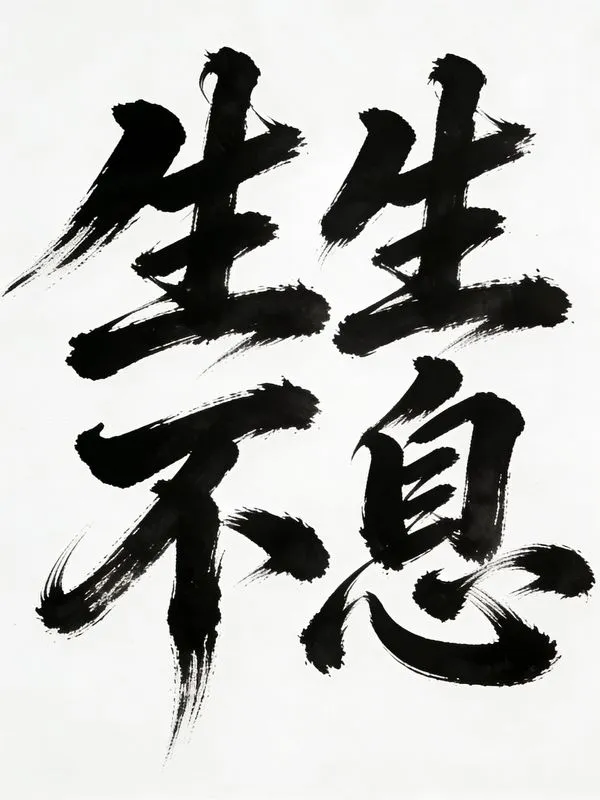 生生
不息